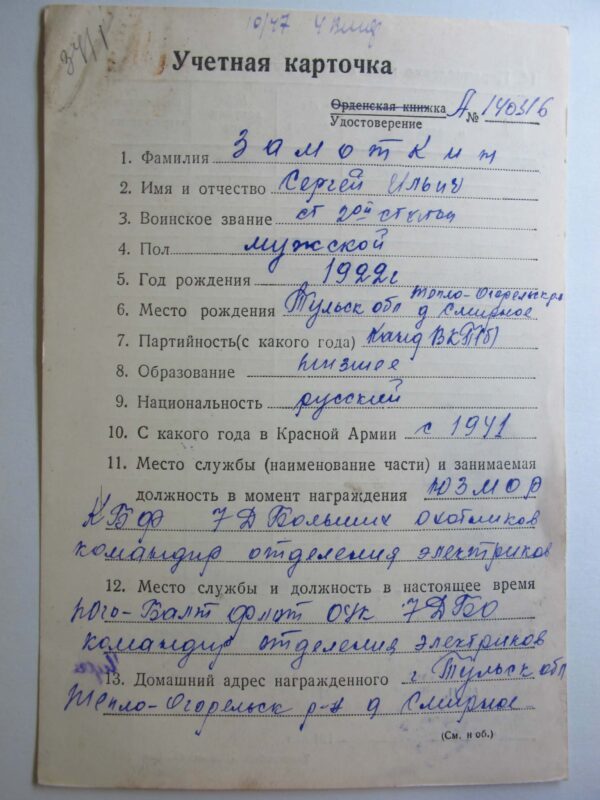 10/47
34/1
Учетная карточка
Орденская книжка А № 140316
Удостоверение
1. Фамилия Замоткин
2. Имя и отчество Сергей Ильич
3. Воинское звание ст 2ой статьи
4. Пол мужской
5. Год рождения 1922г
6. Место рождения Тульск обл Тепло-Огорельск рн д Смирное
7. Партийность(с какого года) Канд ВКП(б)
8. Образование низшее
9. Национальность русский
10. С какого года в Красной Армии с 1941
11. Место службы (наименование части) и занимаемая
должность в момент награждения ЮЗМОР
КБФ 7Д Больших охотников
командир отделения электриков
12. Место службы и должность в настоящее время
Юго-Балт флот 7ДБО
командир отделения электриков
13. Домашний адрес награжденного г. Тульск обл
Тепло-Огорельск р-н д Смирное
(См. н об.)